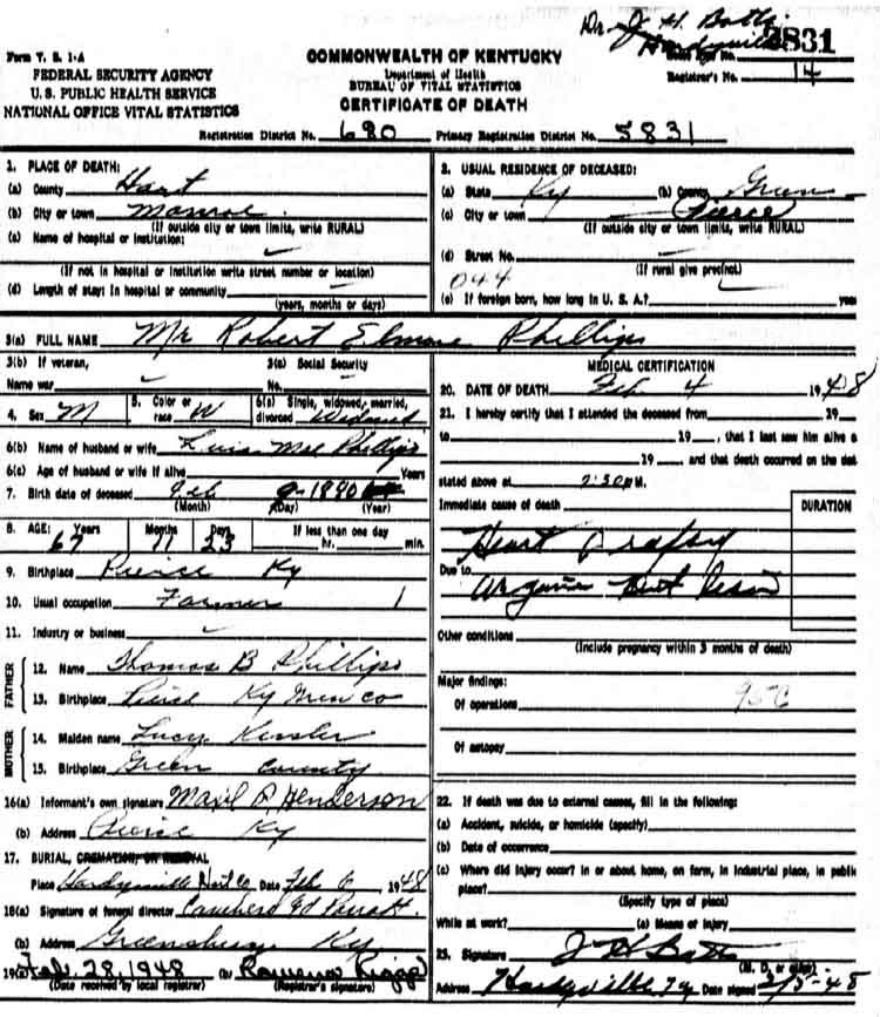 Dr. J. H. Batts
Hardyville
Form V. S. 1-A
FEDERAL SECURITY AGENCY
U. S. PUBLIC HEALTH SERVICE
NATIONAL OFFICE VITAL STATISTICS
COMMONWEALTH OF KENTUCKY
Department of Health
BUREAU OF VITAL STATISTICS
CERTIFICATE OF DEATH
3831
Registrar's No. 14
Registration District No. 680 Primary Registration District No. 5831
1. PLACE OF DEATH:
(a) County Hart
(b) City or town Monroe
(If outside city or town limits, write RURAL)
(c) Name of hospital or institution:
(If not in hospital or institution write street number or location)
(d) Length of stay: In hospital or community
(years, months or days)
2. USUAL RESIDENCE OF DECEASED:
(a) State Ky (b) County Green
(c) City or town Pierce
(If outside city or town limits, write RURAL)
(d) Street No.
(If rural give precinct)
044
(e) If foreign born, how long in U. S. A.? years
3(a) FULL NAME Mr Robert Elmore Phillips
3(b) If veteran, 3(c) Social Security
Name war No.
4. Sex M 5. Color or race W 6(a) Single, widowed, married, divorced Widowed
6(b) Name of husband or wife Mae Phillips
6(c) Age of husband or wife if alive Years
7. Birth date of deceased Feb 9-1880
(Month) (Day) (Year)
8. AGE: Years Months Days If less than one day
67 11 23 hr. min.
9. Birthplace Pierce Ky
10. Usual occupation Farmer 1
11. Industry or business
FATHER
12. Name Thomas B Phillips
13. Birthplace Pierce Ky Green co
MOTHER
14. Maiden name Lucy Kessler
15. Birthplace Green County
16(a) Informant's own signature Henderson
(b) Address Pierce Ky
17. BURIAL, CREMATION, OR REMOVAL
Place Hardyville Hart Co Date Feb 6, 1948
18(a) Signature of funeral director
(b) Address Greensburg Ky
19(a) Feb. 28, 1948 (b) Ramona Riggs
(Date received by local registrar) (Registrar's signature)
MEDICAL CERTIFICATION
20. DATE OF DEATH Feb 4 1948
21. I hereby certify that I attended the deceased from 19
to 19 , that I last saw him alive o
19 , and that death occurred on the dat
stated above at 7:30 P M.
Immediate cause of death
DURATION
Heart
Due to
Other conditions
(Include pregnancy within 3 months of death)
Major findings:
Of operations 95C
Of autopsy
22. If death was due to external causes, fill in the following:
(a) Accident, suicide, or homicide (specify)
(b) Date of occurrence
(c) Where did injury occur? In or about home, on farm, in industrial place, in public
place?
(Specify type of place)
While at work? (e) Means of injury
23. Signature J H Batts
(M. D. or other)
Address Hardyville Ky Date signed 2/5-48